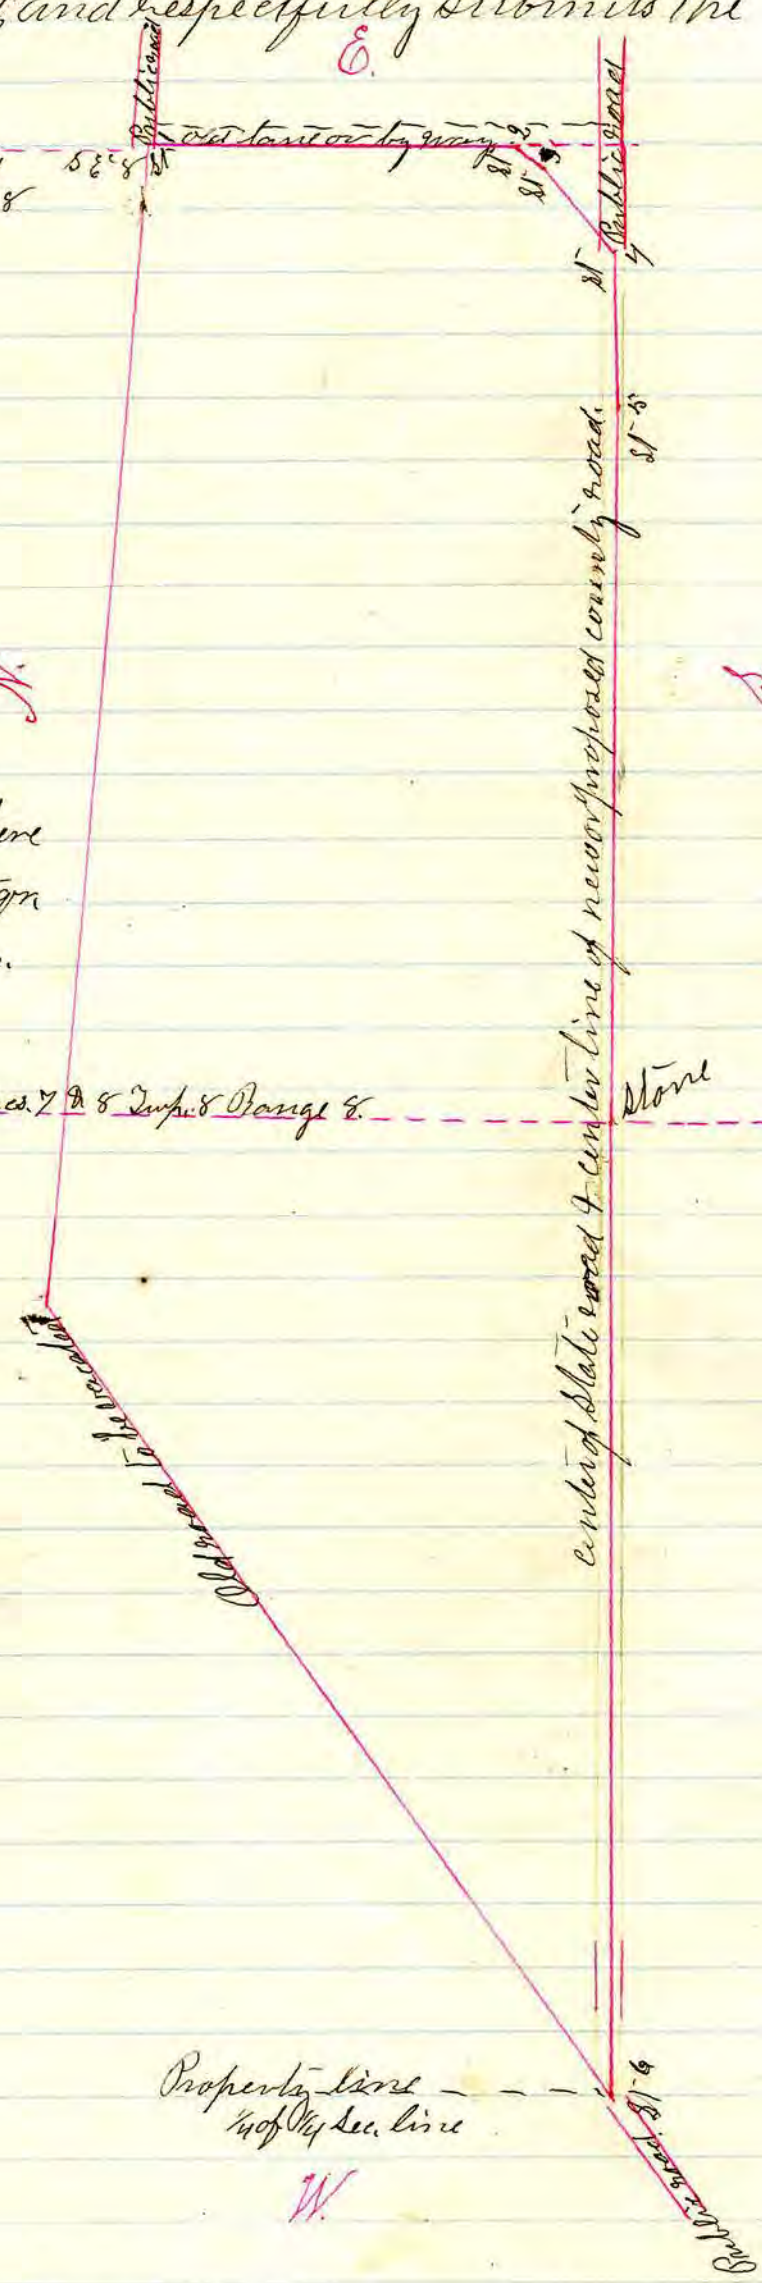 and respectfully submits the
E.
Public road
Public road
old lane or by way
St 1
St 2
St 3
St 4
St 5
8
N.
center of State road & center line of new or proposed county road.
7 & 8 Twp. 8 Range 8.
Stone
Old road to be vacated
Property line
1/4 of 1/4 Sec. line
St 6
Public road.
W.